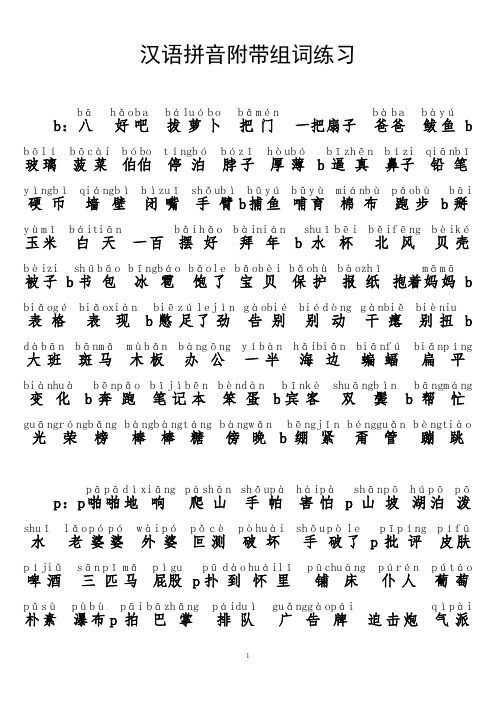 汉语拼音附带组词练习
bā hǎoba báluóbo bǎmén bàba bàyú
b：八 好吧 拔萝卜 把门 一把扇子 爸爸 鲅鱼 b
bōlí bōcài bóbo tíngbó bózǐ hòubó bīzhēn bízi qiānbǐ
玻璃 菠菜 伯伯 停泊 脖子 厚薄 b 逼真 鼻子 铅笔
yìngbì qiángbì bìzuǐ shǒubì bǔyú bǔyù miánbù pǎobù bāi
硬币 墙壁 闭嘴 手臂 b捕鱼 哺育 棉布 跑步 b掰
yùmǐ báitiān bǎihǎo bàinián shuǐbēi běifēng bèiké
玉米 白天 一百 摆好 拜年 b 水杯 北风 贝壳
bèizi shūbāo bīngbáo bǎole bǎobèi bǎohù bàozhǐ māmā
被子 b书包 冰雹 饱了 宝贝 保护 报纸 抱着妈妈 b
biǎogé biǎoxiàn biēzúlejìn gàobié biédòng gànbiě bièniu
表格 表现 b憋足了劲 告别 别动 干瘪 别扭 b
dàbān bānmǎ mùbǎn bàngōng yíbàn hǎibiān biānfú biǎnpíng
大班 斑马 木板 办公 一半 海边 蝙蝠 扁平
biànhuà bēnpǎo bǐjìběn bèndàn bīnkè shuāngbìn bāngmáng
变化 b奔跑 笔记本 笨蛋 b宾客 双鬓 b帮忙
guāngróngbǎng bàngbàngtáng bàngwǎn bēngjǐn béngguǎn bèngtiào
光荣榜 棒棒糖 傍晚 b绷紧 甭管 蹦跳
pāpādìxiǎng páshān shǒupà hàipà shānpō húpō pō
p：p啪啪地响 爬山 手帕 害怕 p 山坡 湖泊 泼
shuǐ lǎopópó wàipó pǒcè pòhuài shǒupòle pīpíng pífū
水 老婆婆 外婆 叵测 破坏 手破了 p批评 皮肤
píjiǔ sānpǐmǎ pìgu pūdàohuáilǐ pūchuáng púrén pútáo
啤酒 三匹马 屁股 p扑到怀里 铺床 仆人 葡萄
pǔsù pùbù pāibāzhǎng páiduì guǎnggàopái qìpài
朴素 瀑布p拍巴掌 排队 广告牌 迫击炮 气派
1